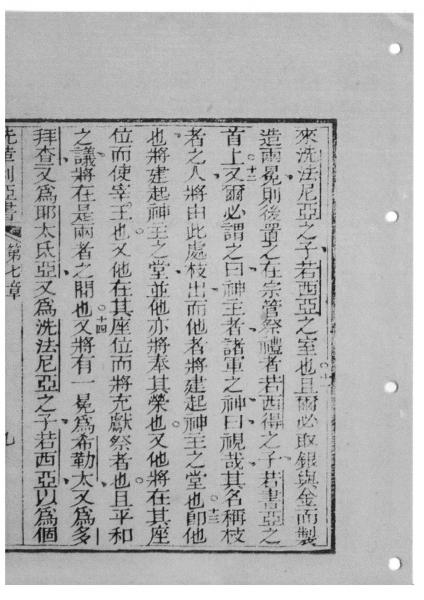 來洗法尼亞之子若西亞之室也十一且爾必取銀與金而製
造兩冕則後置之在宗管祭禮者若西得之子若書亞之
首上十二又爾必謂之曰神主者諸軍之神曰視哉其名稱枝
者之人將由此處枝出而他者將建起神主之堂也十三即他
也將建起神主之堂並他亦將奉其榮也又他將在其座
位而使宰王也又他在其座位而將充獻祭者也且平和
之議將在是兩者之間也十四又將有一冕為希勒太又為多
拜查又為耶太氐亞又為洗法尼亞之子若西亞以為個
亞書 第七章 九